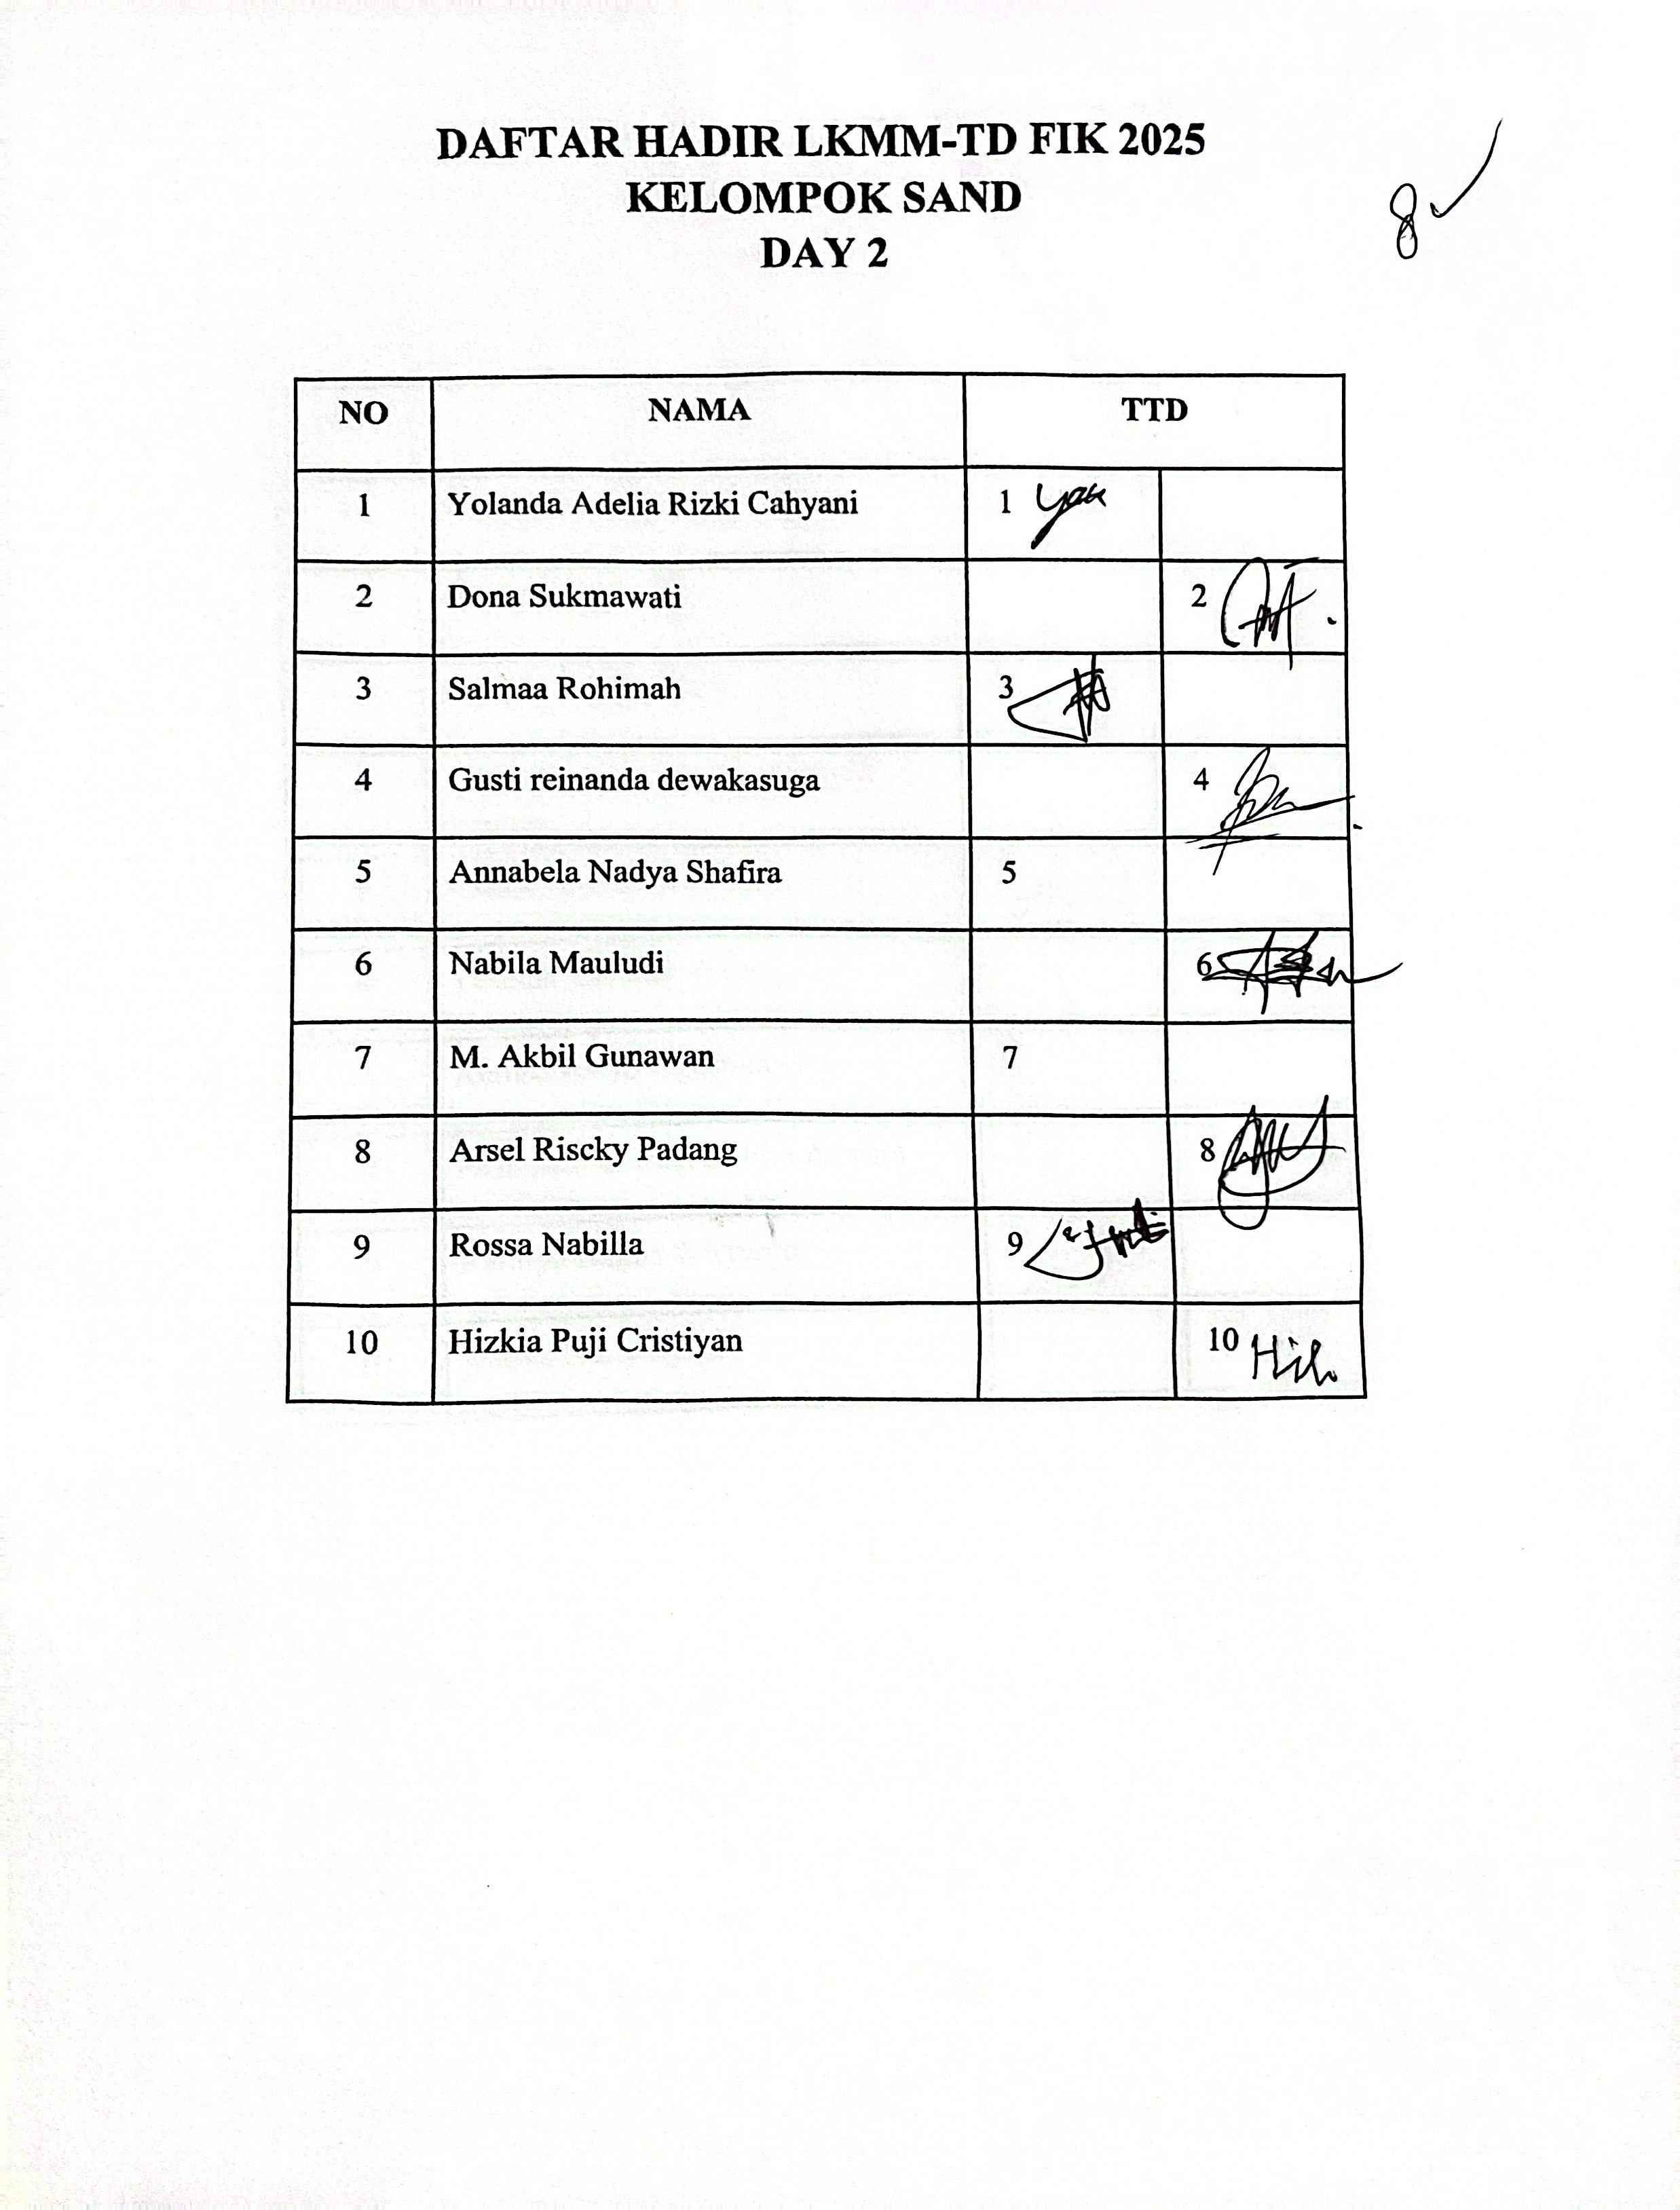 DAFTAR HADIR LKMM-TD FIK 2025
KELOMPOK SAND
DAY 2
8
NO NAMA TTD
1 Yolanda Adelia Rizki Cahyani 1
2 Dona Sukmawati 2
3 Salmaa Rohimah 3
4 Gusti reinanda dewakasuga 4
5 Annabela Nadya Shafira 5
6 Nabila Mauludi 6
7 M. Akbil Gunawan 7
8 Arsel Riscky Padang 8
9 Rossa Nabilla 9
10 Hizkia Puji Cristiyan 10